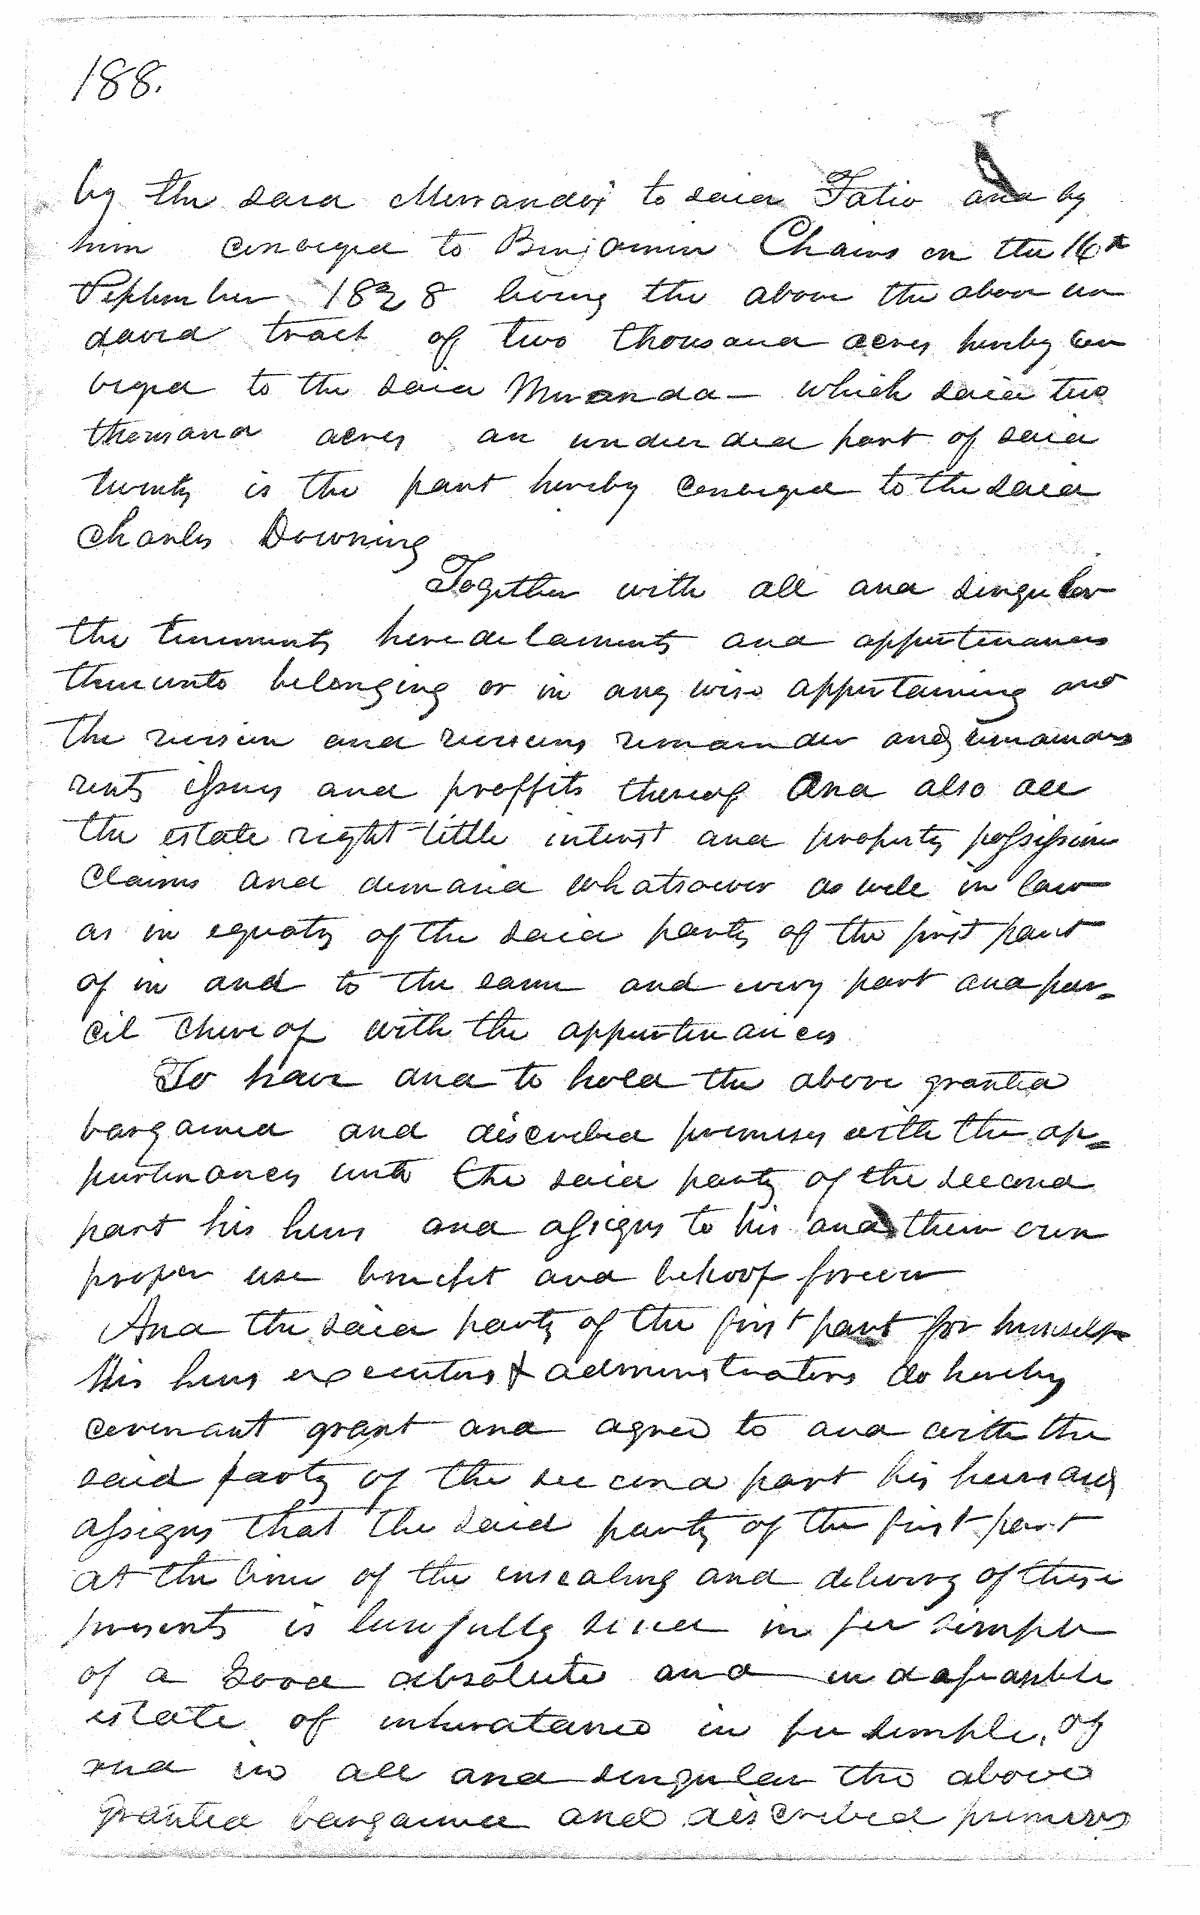 188.
by the said Mirranda to said Fatio and by
him conveyed to Benjamin Chairs on the 16th
September 1828 being the above the above un
david tract of two thousand acres hereby con
veyed to the said Miranda — which said two
thousand acres an undivided part of said
twenty is the part hereby conveyed to the said
Charles Downing
Together with all and singular
the tenements heredelaments and appurtenances
thereunto belonging or in any wise appertaining and
the revision and revisions remainder and remainders
rents issues and proffits thereof And also all
the estate right tittle interest and property possission
claims and demand whatsoever as well in law
as in equaty of the said party of the first part
of in and to the same and every part and par=
cil thereof with the appurtenances
To have and to hold the above granted
bargained and discribed premises with the ap=
purtenances unto the said party of the second
part his heirs and assigns to his and their own
proper use benefit and behoof forever
And the said party of the first part for himself
his heirs executors & administrators do hereby
covenant grant and agree to and with the
said party of the second part his heirs and
assigns that the said party of the first part
at the time of the ensealing and delivery of these
presents is lawfully seized in fee simple
of a good absolute and indefeasible
estate of inheratance in fee simple, of
and in all and singular the above
granted bargained and discribed premises